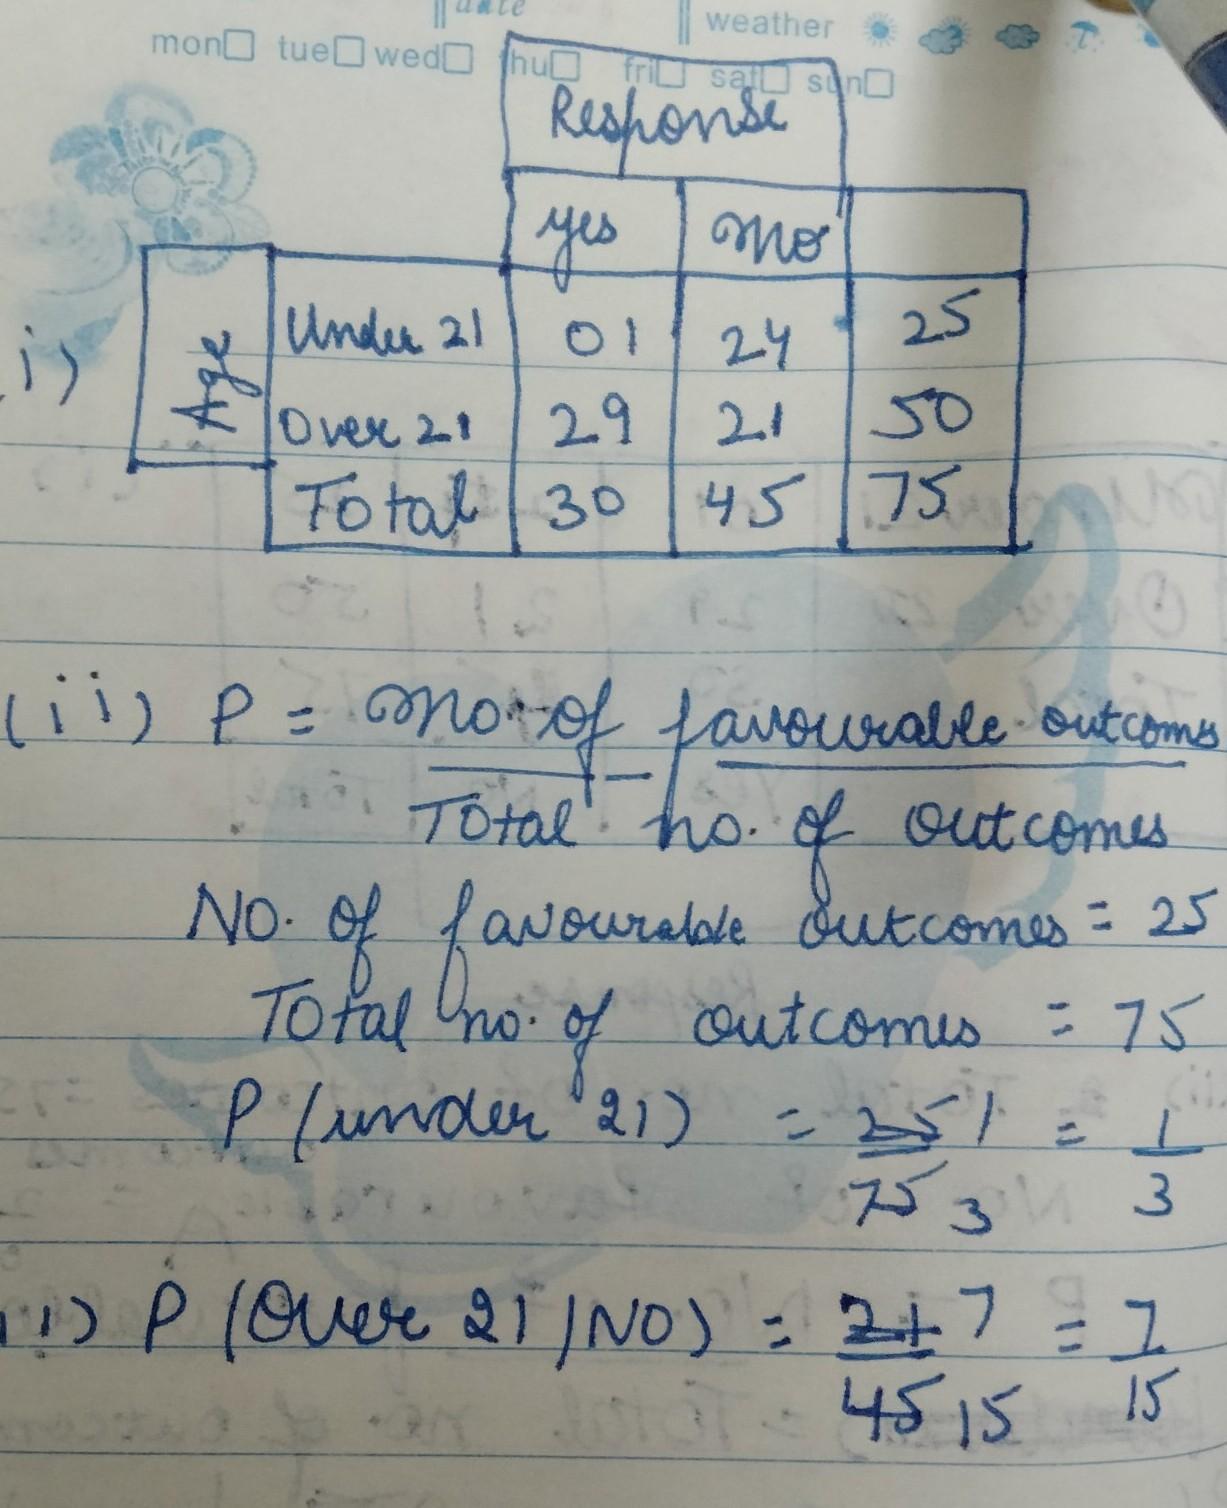 date
weather
mon tue wed thu fri sat sun
Response
yes No
i) Age Under 21 01 24 25
Over 21 29 21 50
Total 30 45 75
(ii) P = No. of favourable outcomes
Total no. of outcomes
No. of favourable outcomes = 25
Total no. of outcomes = 75
P (under 21) = 25 1 = 1
75 3 3
ii) P (Over 21 / NO) = 21 7 = 7
45 15 15